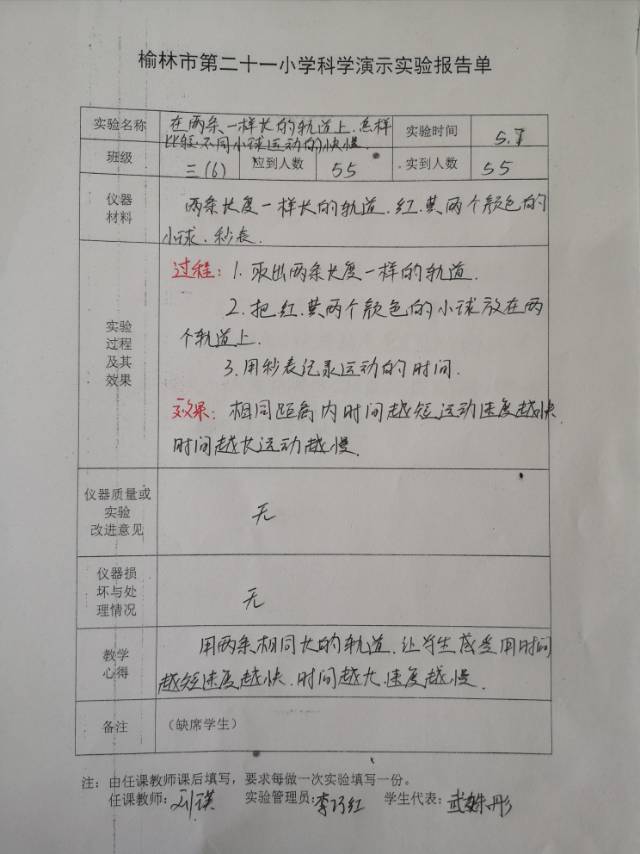 榆林市第二十一小学科学演示实验报告单
实验名称
在两条一样长的轨道上.怎样
比较不同小球运动的快慢.
实验时间
5.7
班级
三(6)
应到人数
55
实到人数
55
仪器
材料
两条长度一样长的轨道.红.黄两个颜色的
小球.秒表.
实验
过程
及其
效果
过程:1.取出两条长度一样的轨道.
2.把红.黄两个颜色的小球放在两
个轨道上.
3.用秒表记录运动的时间.
效果:相同距离内时间越短运动速度越快
时间越长运动越慢.
仪器质量或
实验
改进意见
无
仪器损
坏与处
理情况
无
教学
心得
用两条相同长的轨道.让学生感受用时间
越短速度越快.时间越长速度越慢.
备注
（缺席学生）
注：由任课教师课后填写，要求每做一次实验填写一份。
任课教师:刘祺 实验管理员:李巧红 学生代表:武姝彤